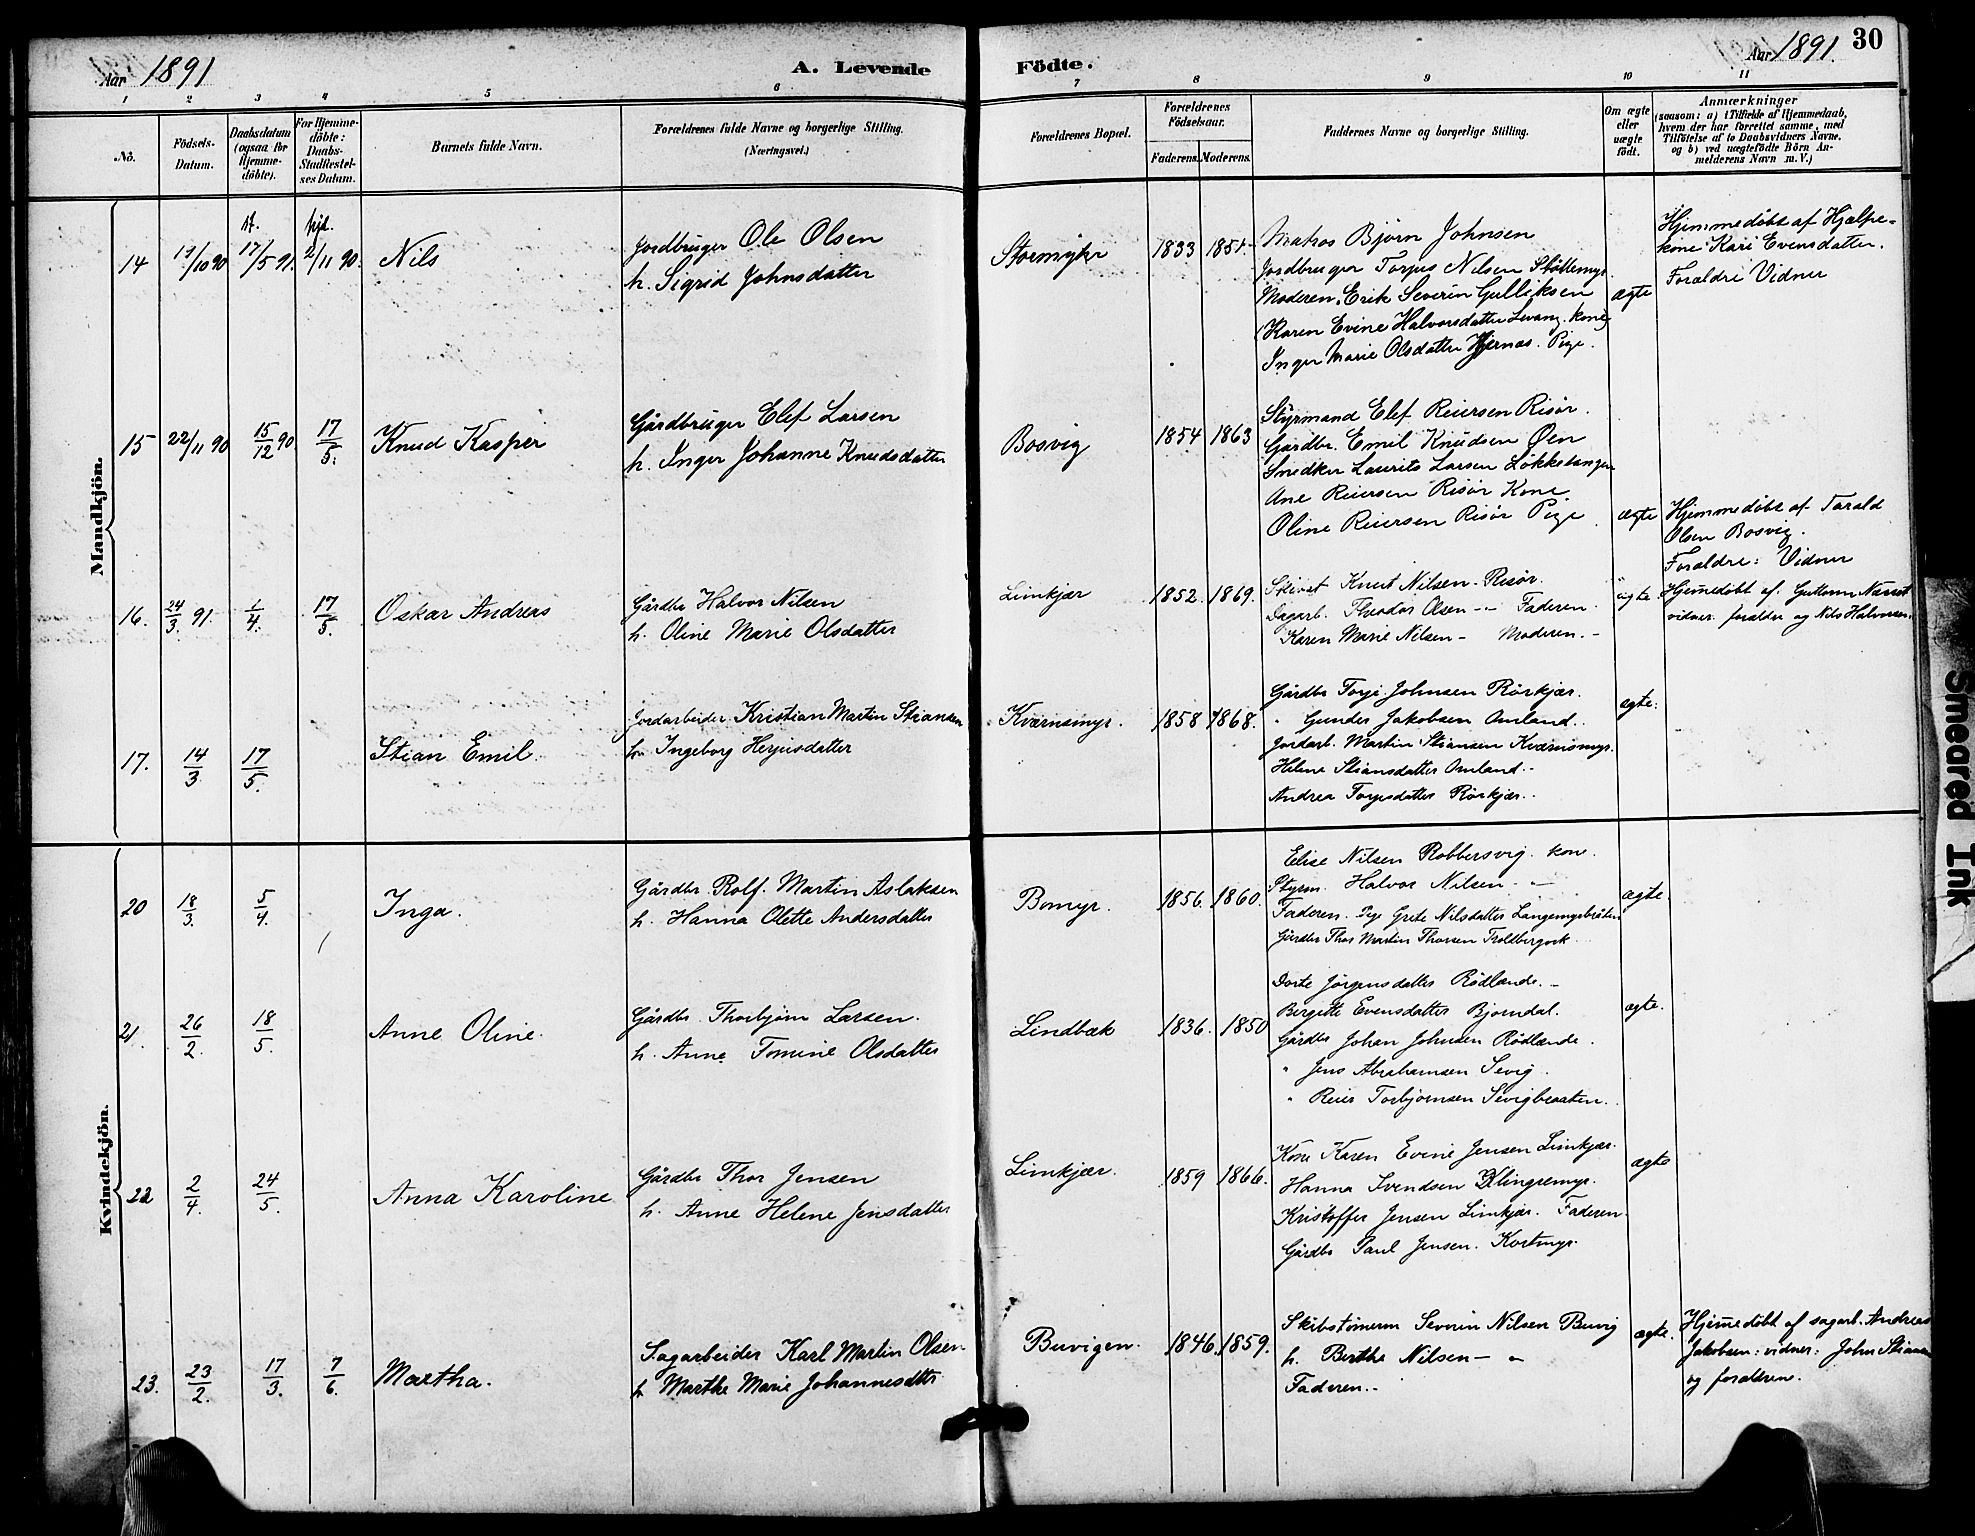 Aar 1891
A. Levende
Födte.
Aar 1891.
30
1 2 3 4 5 6 7 8 9 10 11
No.
Födsels-Datum.
Daabsdatum (ogsaa for Hjemme-döbte).
For Hjemme-döbte: Daabs-Stadfæstel-ses Datum.
Barnets fulde Navn.
Forældrenes fulde Navne og borgerlige Stilling.
(Næringsvei.)
Forældrenes Bopæl.
Forældrenes Födselsaar.
Faderens. Moderens.
Faddernes Navne og borgerlige Stilling.
Om ægte eller uægte födt.
Anmærkninger
(saasom: a) i Tilfælde af Hjemmedaab,
hvem der har forrettet samme, med
Tilföielse af to Daabsvidners Navne,
og b) ved uægtefödte Börn An-
melderens Navn m.V.)
Mandkjön.
14 /10 90 17/5 91. hjd. 2/11 90. Nils
Jordbruger Ole Olsen
h. Sigrid Johnsdatter
Stormyhr 1833
Matros Bjørn Johnsen
Jordbruger Torjus Nilsen Støttemyr.
Moderen, Erik Severin Gulliksen
(Karen Evine Halvorsdatter Levang. kone)
Inger Marie Olsdatter Hjernæs. Pige.
ægte
Hjemmedöbt af Hjælpe-
kone Kari Evensdatter.
Forældre Vidner
15 22/11 90 15/12 90. 17/5. Knud Kasper
Gårdbruger Elef Larsen
h. Inger Johanne Knudsdatter
Bosvig 1854 1863
Styrmand Elef Reiersen Risør.
Gårdbr. Emil Knudsen Øen
Snedker Laurits Larsen Løkkelangen
Ane Reiersen Risør Kone
Oline Reiersen Risør Pige
ægte
Hjemmedöbt af Tarald
Olsen Bosvig.
Forældre: Vidner
16. 24/3. 91. 1/4. 17/5. Oskar Andreas
Gårdbr Halvor Nilsen
h. Oline Marie Olsdatter
Limkjær 1852. 1869.
Knut Nilsen - Risør.
Dagarb. Theodor Olsen - - Faderen.
Karen Marie Nilsen - Moderen. -
ægte.
Hjemedöbt af. Guttorm
vidner. forældre og Nils Halvorsen.
17. 14/3. 17/5. Stian Emil.
Jordarbeider. Kristian Martin Stiansen
h. Ingeborg Herjusdatter
Kværnsmyr. 1858 1868.
Gårdbr Torje Johnsen Rörkjær.
" Gunder Jakobsen Omland.
Jordarb. Martin Stiansen Kværnsmyr.
Helene Stiansdatter Omland. -
Andrea Torjusdatter Rörkjær.
ægte.
Kvindekjön.
20 18/3. 5/4. Inga.
Gårdbr. Rolf. Martin Aslaksen
h. Hanna Olette Andersdatter
Bomyr. 1856. 1860.
Elise Nilsen Robbersvig. kone.
Styrm. Halvor Nilsen. - -
Faderen. Pige Grete Nilsdatter Langemyrbråten
Gårdbr Thor Martin Thorsen
ægte.
21. 26/2. 18/5. Anne Oline.
Gårdbr. Thorbjörn Larsen.
h. Anne Tomine Olsdatter
Lindbæk 1836. 1850
Dorte Jörgensdatter Rödlande. -
Bergitte Evensdatter Bjorndal.
Gårdbr Johan Johnsen Rödlande.
" Jens Abrahamsen Sevig.
" Reier Torbjörnsen Sevigbraaten.
ægte.
22 2/4. 24/5. Anna Karoline
Gårdbr Thor Jensen
h. Anne Helene Jensdatter
Limkjær. 1859 1866.
Kone Karen Evine Jensen Limkjær.
Hanna Svendsen Klingremyr.
Kristoffer Jensen Limkjær. Faderen.
Gårdbr Paul Jensen. Kortmyr.
ægte
23. 23/2. 17/3. 7/6. Martha.
Sagarbeider Karl Martin Olsen
h Marthe Marie Johannesdtr
Buvigen. 1846. 1859.
Skibstömerm Severin Nilsen Buvig
h. Berthe Nilsen - "
Faderen. -
ægte.
Hjemedöbt af sagarb. Andreas
Jakobsen: vidner: John Stiansen
og forældrene.
Smeared Ink